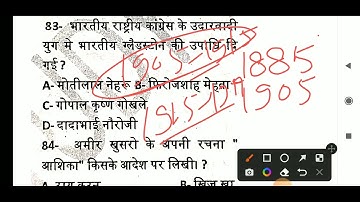 83- भारतीय राष्ट्रीय कांग्रेस के उदारवादी
युग मे भारतीय ग्लैडस्टोन की उपाधि दि
गई ?
1885
A- मोतीलाल नेहरू B- फिरोजशाह मेहता
1905
C- गोपाल कृष्ण गोखले
D- दादाभाई नौरोजी
84- अमीर खुसरो के अपनी रचना "
आशिका" किसके आदेश पर लिखी। ?